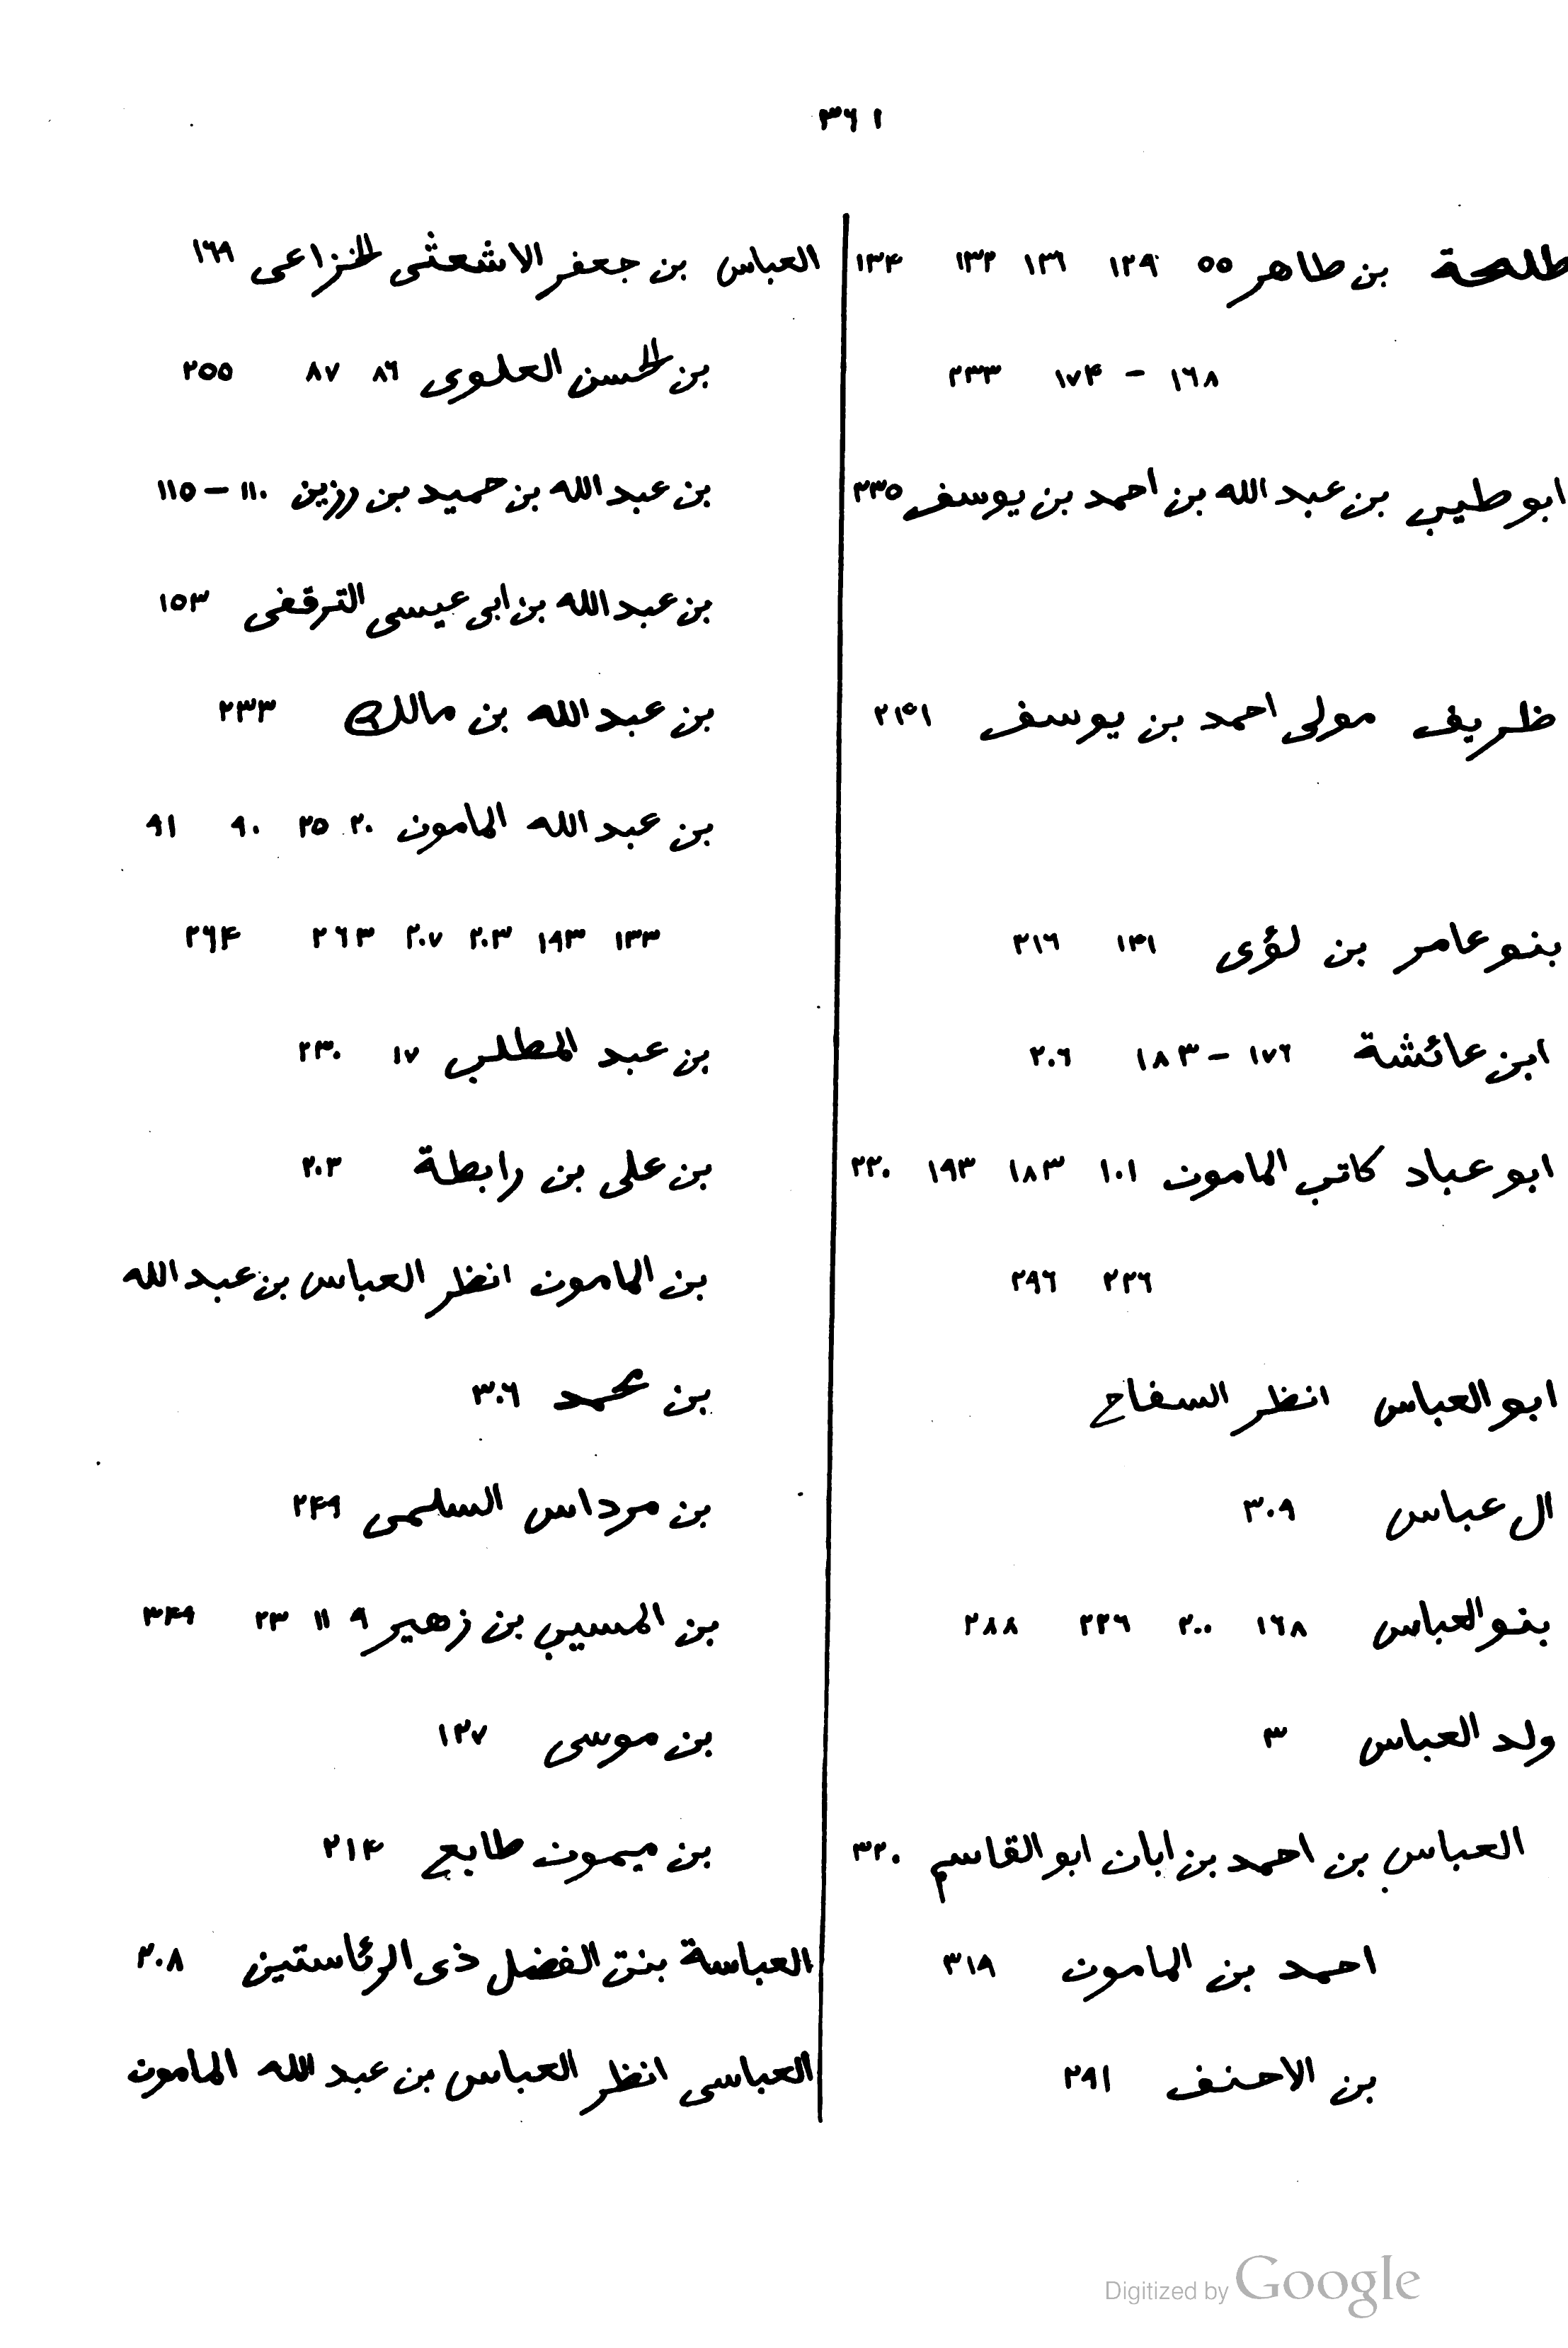 ٣٦١
طلحة بن طاهر ٥٥ ١٢٩ ١٣٦ ١٣٢ ١٣۴
١٦٨ - ١٧۴ ٢٣٣
ابو طيب بن عبد الله بن احمد بن يوسف ٢٣٥
ظريف مولى احمد بن يوسف ٢۴١
بنو عامر بن لؤى ١٣١ ٢١٦
ابن عائشة ١٧٦ - ١٨٣ ٢٠٦
ابو عباد كاتب المامون ١٠١ ١٨٣ ١٩٣ ٢٢٠
٢٢٦ ٢٩٦
ابو العباس انظر السفاح
ال عباس ٣٠٩
بنو العباس ١٦٨ ٢٠٠ ٢٢٦ ٢٨٨
ولد العباس ٣
العباس بن احمد بن ابان ابو القاسم ٣٢٠
احمد بن المامون ٣١٩
بن الاحنف ٢٩١
العباس بن جعفر الاشعثى الخزاعى ١٦٩
بن الحسن العلوى ٨٦ ٨٧ ٢٥٥
بن عبد الله بن حميد بن رزين ١١٠ - ١١٥
بن عبد الله بن ابى عيسى الترقفى ١٥٣
بن عبد الله بن مالك ٢٣٣
بن عبد الله المامون ٢٠ ٢٥ ٩٠ ٩١
١٣٣ ١٩٣ ٢٠٣ ٢٠٧ ٢٦٣ ٢٦۴
بن عبد المطلب ١٧ ٢٣٠
بن على بن رابطة ٢٠٣
بن المامون انظر العباس بن عبد الله
بن محمد ٣٠٦
بن مرداس السلمى ٢۴٩
بن المسيب بن زهير ٩ ١١ ٢٣ ٣۴٩
بن موسى ١٢٧
بن ميمون طابع ٢١۴
العباسة بنت الفضل ذى الرئاستين ٢٠٨
العباسى انظر العباس بن عبد الله المامون
Digitized by Google